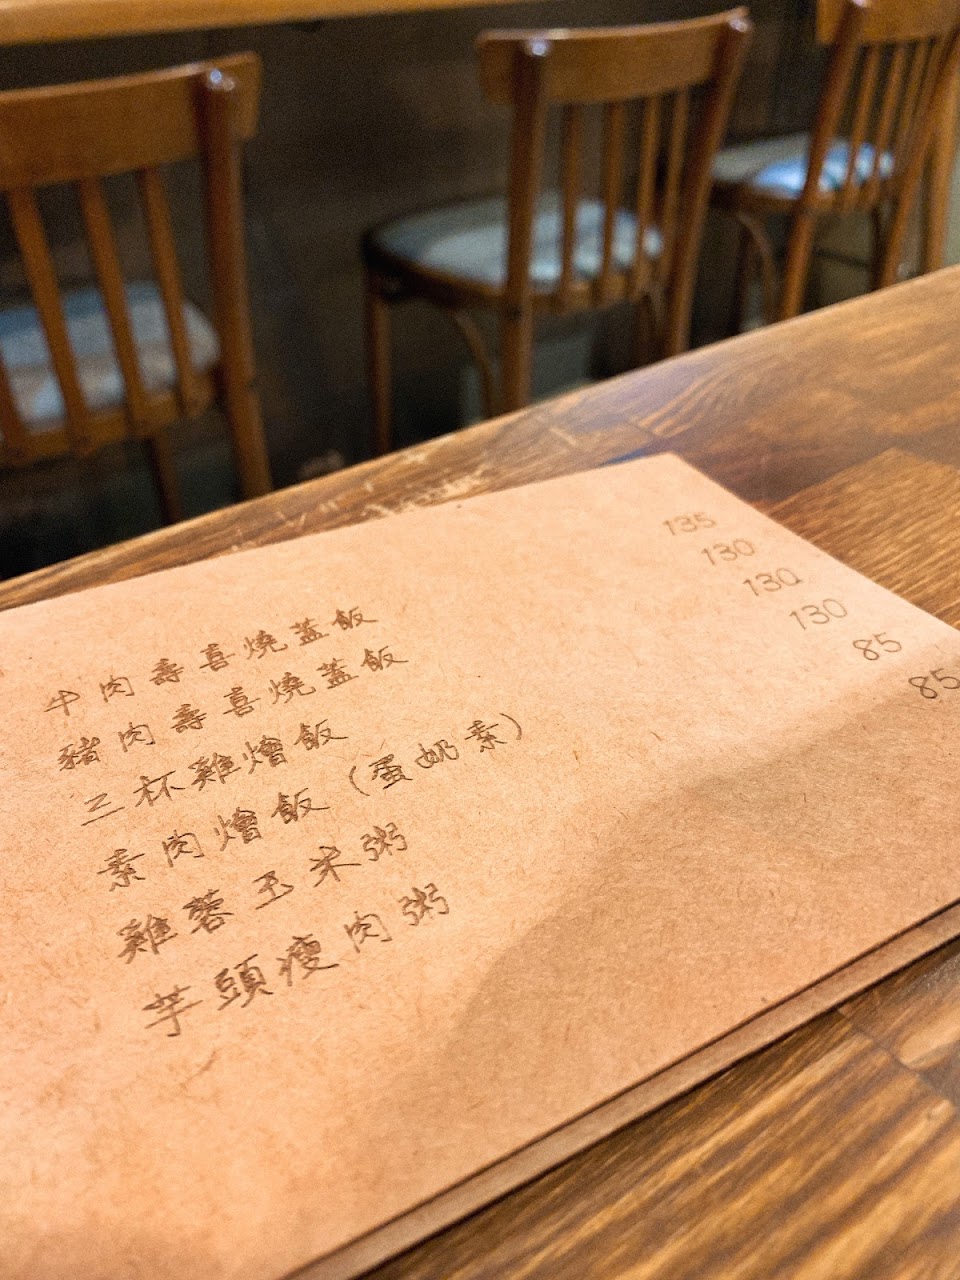 牛肉壽喜燒蓋飯 135
豬肉壽喜燒蓋飯 130
三杯雞燴飯 130
素肉燴飯（蛋奶素） 130
雞蓉玉米粥 85
芋頭瘦肉粥 85